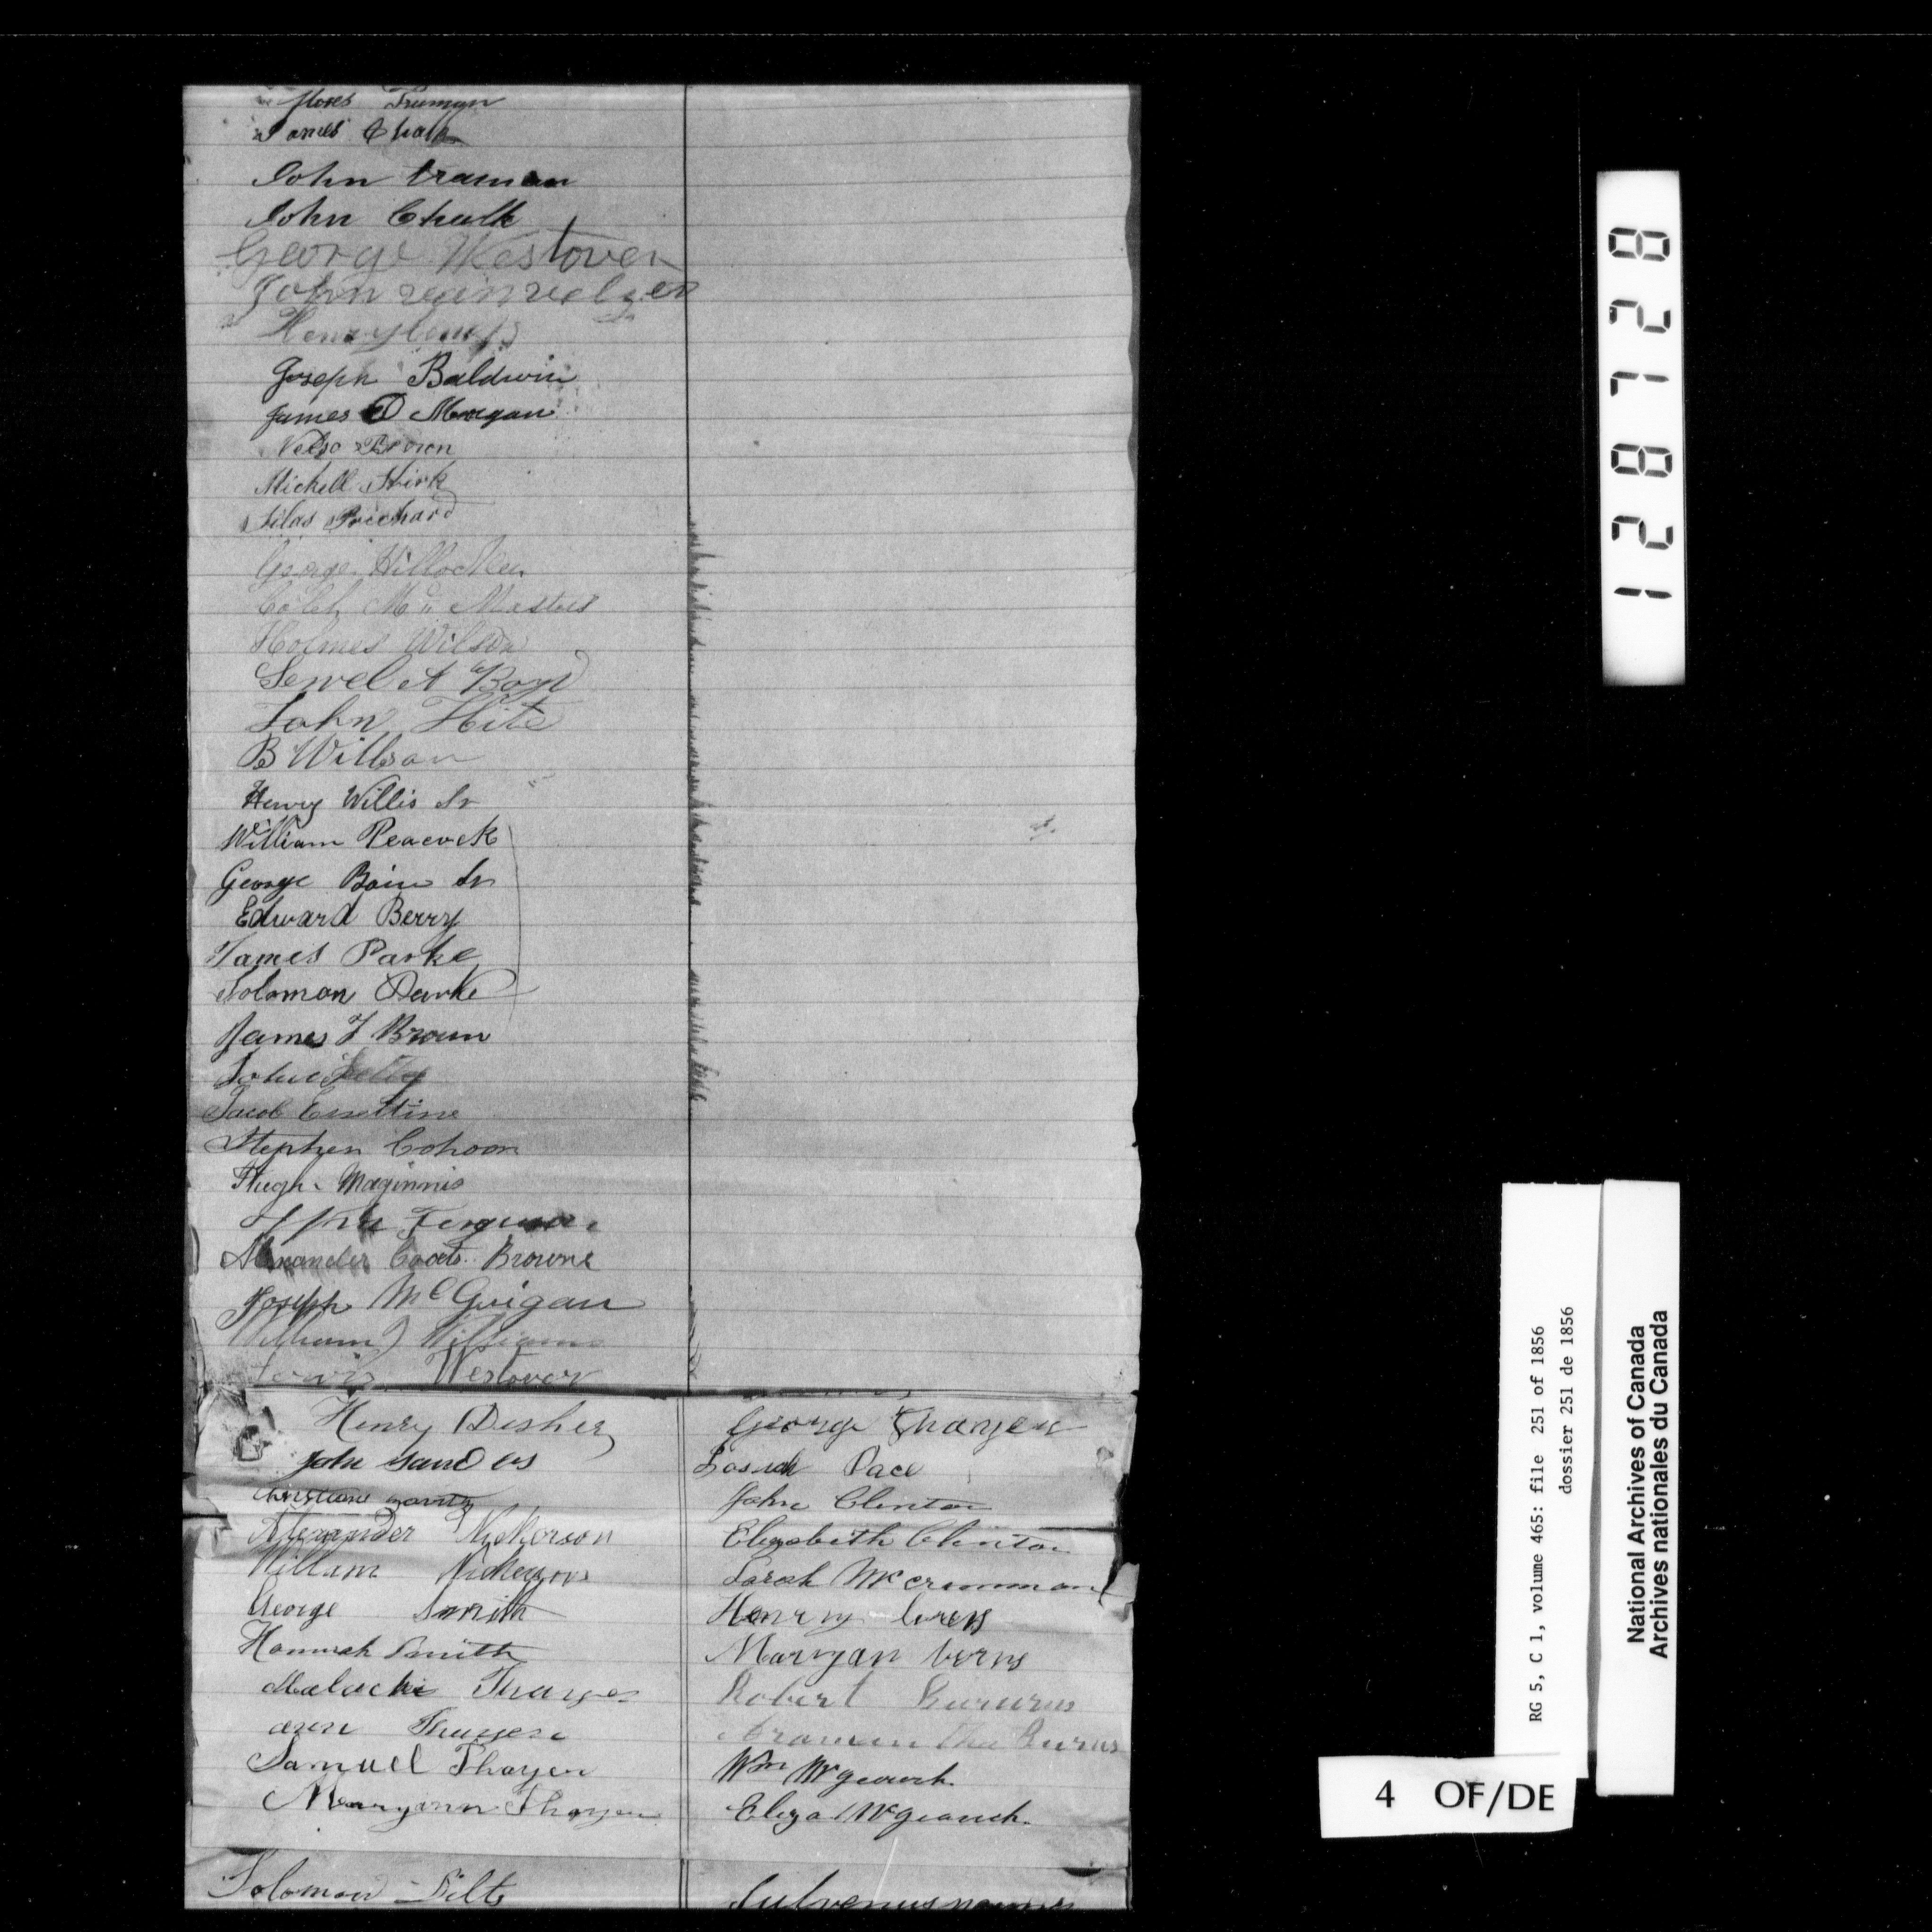 Truman
James Chalk
John truman
John Chalk
George Westover
John
Henry
Joseph Baldwin
James D Morgan
Nelso Brown
Michell Shirk
Silas Prichard
George
Mc Masters
Holmes Wilson
Sewel A Boyd
John Hite
B Willson
Henry Willis Sr
William Peacock
George Bain Sr
Edward Berry
James Parke
Solomon Parke
James F Brown
John
Jacob Esseltine
Stephen Cohoon
Hugh Maginnis
Ferguson
Alexander Coats Browne
Joseph McGuigan
William J Williams
Lewis Westover
Henry Disher
John Sanders
Alexander Nickerson
William Nickerson
George Smith
Hannah Smith
Malachi Thayer
ann Thayer
Samuel Thayer
Maryann Thayer
Solomon Silts
George Thayer
Josiah Pace
John Clinton
Elizabeth Clinton
Sarah McCrimmon
Henry
Maryan
Robert
Burns
Wm McGeauch
Eliza McGeauch
128728
RG 5, C 1, volume 465: file 251 of 1856
dossier 251 de 1856
National Archives of Canada
Archives nationales du Canada
4 OF/DE